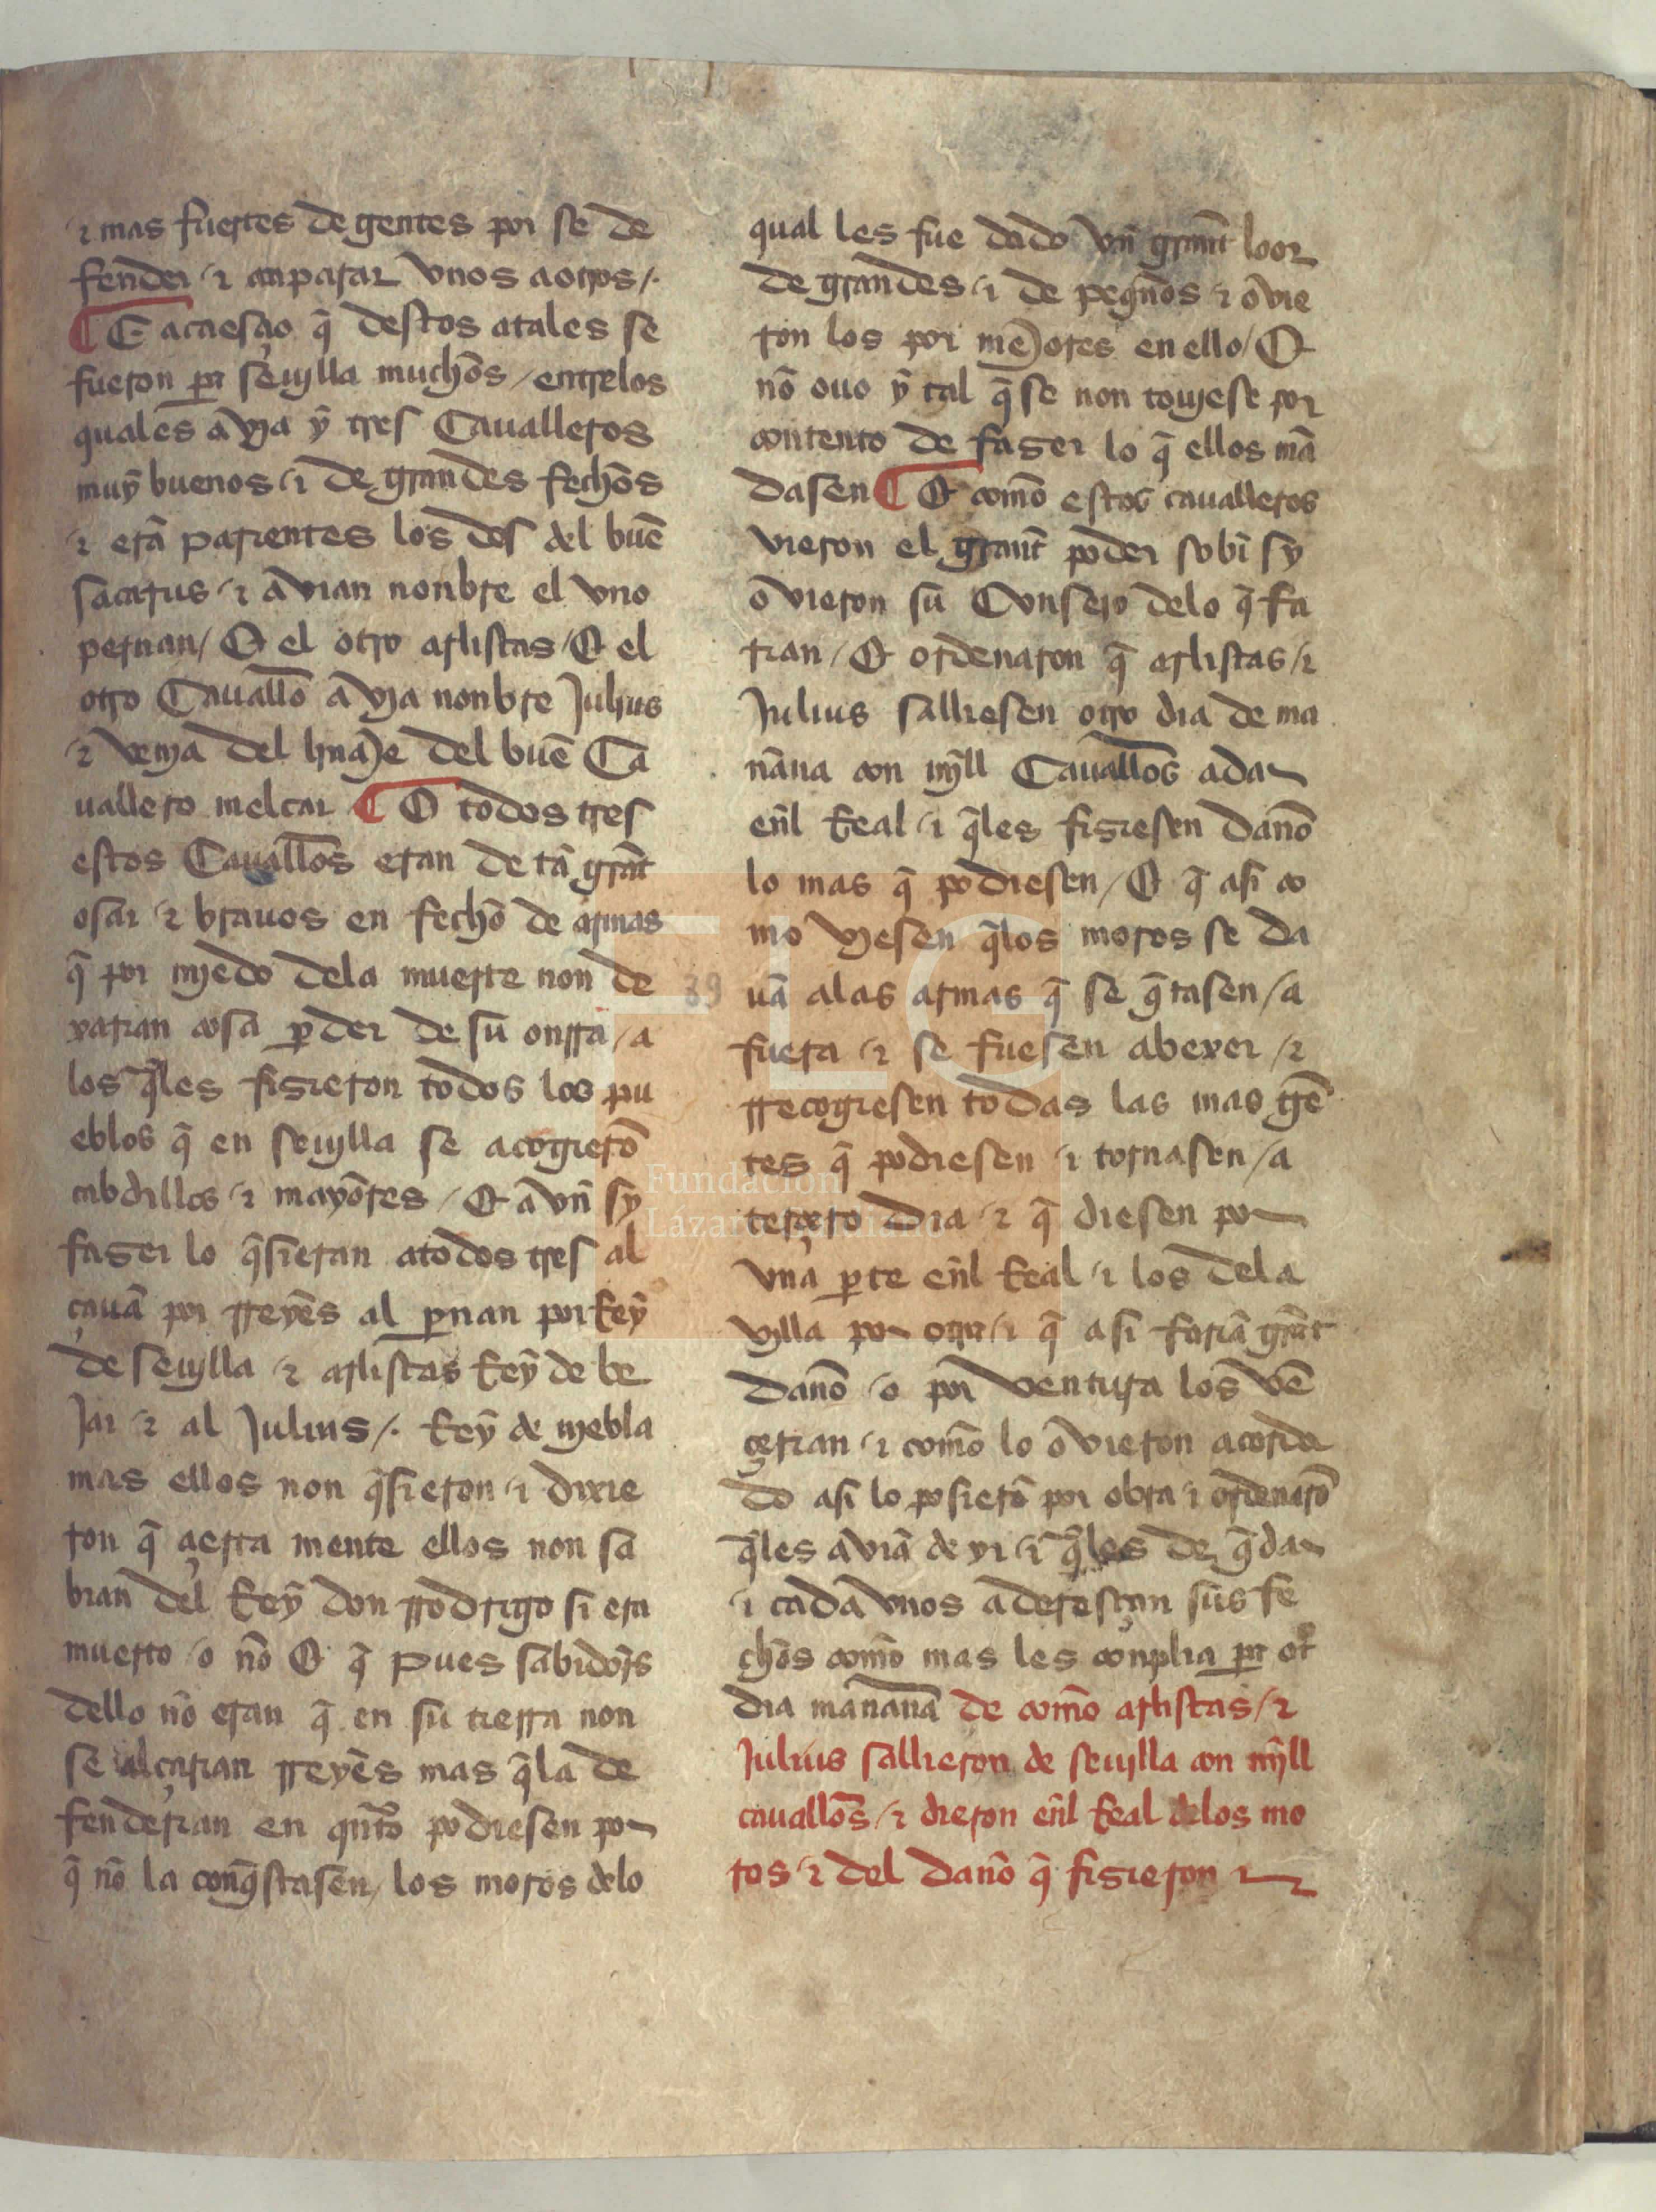 ⁊ mas fuertes de gentes por se de
fender / ⁊ anparar vnos a otros /.
¶ E acaesçio q̃ destos atales se
fueron pa seuylla muchos / entrelos
quales avya ỹ tres Caualleros
muy̅ buenos / ⁊ de grandes fechos
⁊ erã parientes los dos del buẽ
sacarus / ⁊ avian nonbre el vno
pernan / E el otro arlistas / E el
otro Cauallo̅ avya nonbre Julius
⁊ venya del lynaje del buẽ Ca
uallero melcar ¶ E todos tres
estos Cauallo̅s eran de tã gra̅t
osar / ⁊ brauos en fecho̅ de armas
q̃ por myedo dela muerte non de
xarian cosa p̱der de su onrra / a
los q̃les fisieron todos los pu
eblos q̃ en seuylla se acogiero̅
cabdillos / ⁊ mayores / E avn̅ sy
faser lo q̃sieran atodos tres al
çauã por rreyes al p̱nan por Rey̅
de seuylla ⁊ arlistas Rey̅ de be
Jar ⁊ al Julius /. Rey̅ de nyebla
mas ellos non q̃sieron / ⁊ dixie
ron q̃ çierta mente ellos non sa
bian del Rey̅ don rrodrigo si era
muerto / o nõ E q̃ pues sabidor̅s
dello nõ eran q̃ en su tierra non
se alçarian rreyes mas q̃la de
fenderian en qnto̅ podiesen por
q̃ nõ la conq̃stasen / los moros delo
qual les fue dado vn̅ grant̅ loor
de grandes / ⁊ de peqn̅os ⁊ ovie
ron los por mejores en ello / E
nõ ouo y̅ tal q̃ se non touyese por
contento de faser lo q̃ ellos mã
dasen ¶ E como̅ estos caualleros
vieron el grant̅ poder sobr̅ sy
ovieron su Consejo delo q̃ fa
rian / E ordenaron q̃ arlistas / ⁊
Julius salliesen otro dia de ma
ñana con myll Cauallo̅s a dar
en̅l Real / ⁊ q̃les fisiesen daño
lo mas q̃ podiesen / E q̃ asi co
mo vyesen q̃los moros se da
uã alas armas q̃ se q̃tasen / a
fuera / ⁊ se fuesen abexer / ⁊
rrecogiesen todas las mas gẽ
tes q̃ podiesen / ⁊ tornasen / a
terçero dia / ⁊ q̃ diesen por
vna p̱te en̅l Real / ⁊ los dela
vylla por otra / ⁊ q̃ asi fariã gra̅t
daño / o por ventura los vẽ
çerian / ⁊ como̅ lo ovieron acorda
do asi lo posierõ por obra ⁊ ordenarõ
q̃les aviã de yr / ⁊ q̃les de q̃dar
⁊ cada vnos adereçan sus fe
chos como̅ mas les conplia pa otr̊
dia mañanã de como̅ arlistas / ⁊
Julius sallieron de seuylla con myll
cauallo̅s / ⁊ dieron en̅l Real delos mo
ros / ⁊ del daño q̃ fisieron
39
FLG
Fundación
Lázaro Galdiano